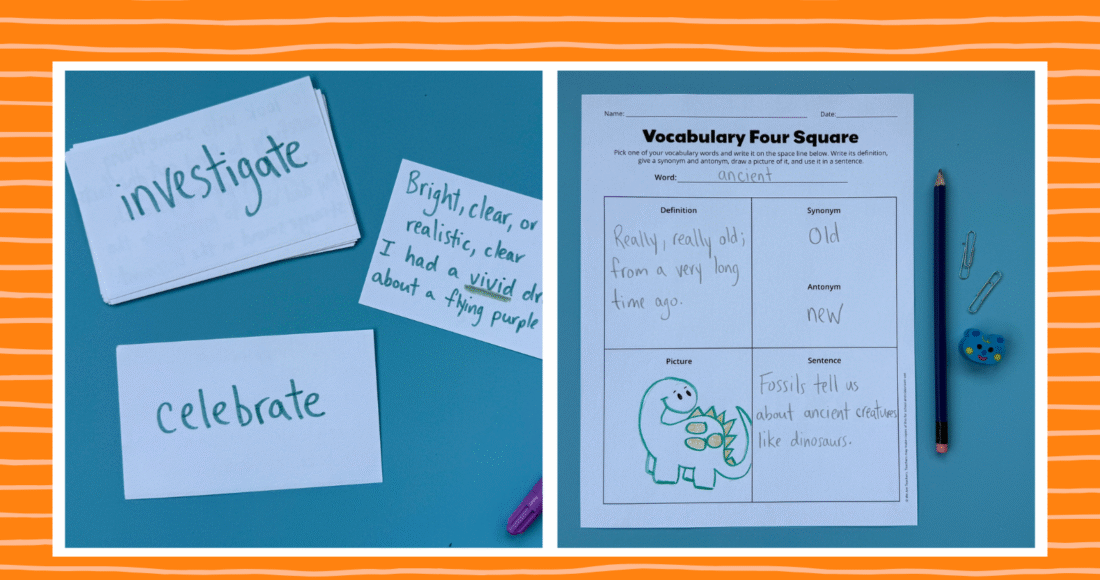 investigate
Bright, clear, or
realistic, clear
I had a vivid
about a flying purple
celebrate
Name:
Date:
Vocabulary Four Square
Pick one of your vocabulary words and write it on the space line below. Write its definition,
give a synonym and antonym, draw a picture of it, and use it in a sentence.
Word: ancient
Definition
Really, really old;
from a very long
time ago.
Synonym
Old
Antonym
new
Picture
Sentence
Fossils tell us
about ancient creatures
like dinosaurs.